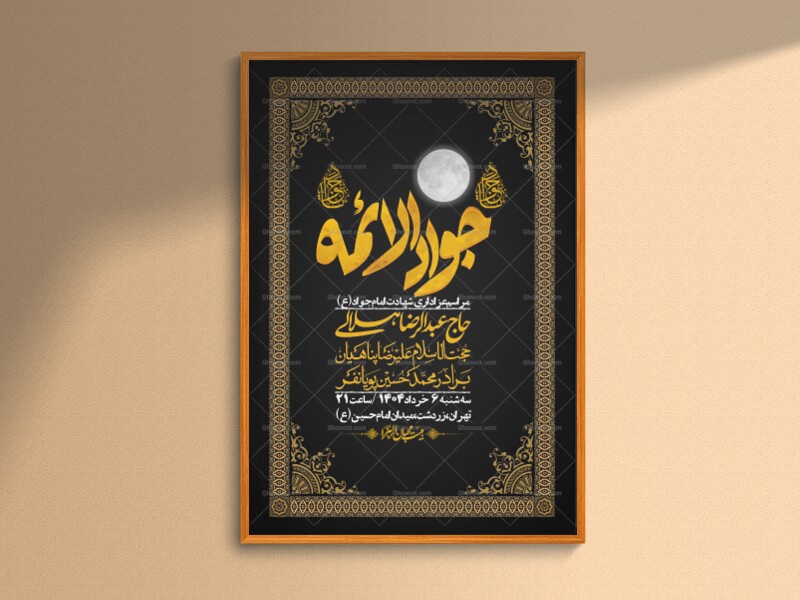 جواد الائمه
مراسم عزاداری شهادت امام جواد (ع)
حاج عبدالرضا هلالی
حجت الاسلام علیرضا پناهیان
برادر محمد حسین پویانفر
سه شنبه ۶ خرداد ۱۴۰۴ / ساعت ۲۱
تهران، زردشت، میدان امام حسین (ع)
Ghonoot.com